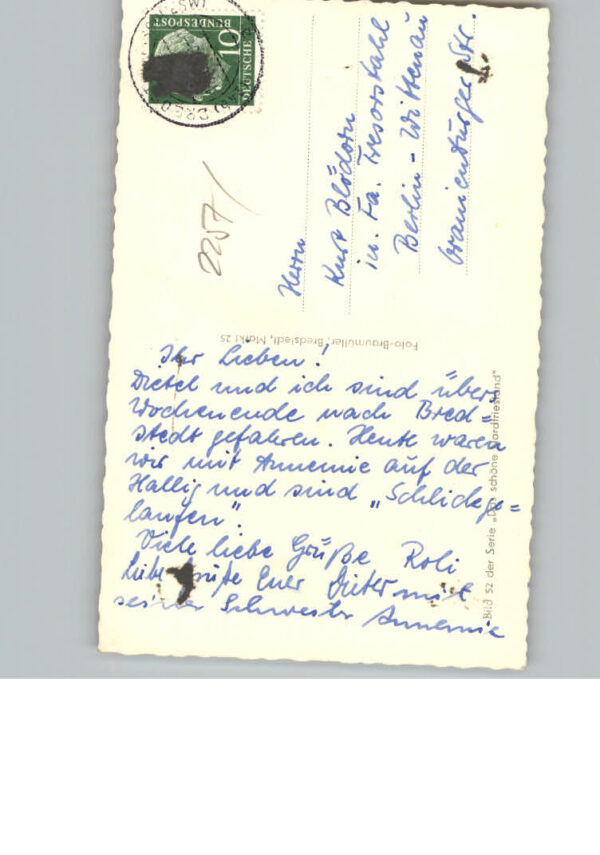 DEUTSCHE
BUNDESPOST
10
2257/
Herrn
Kurt Blödorn
in. Fa. Tresorstahl
Berlin-Wittenau
Oranienburger Str.
Foto-Braumüller, Bredstedt, Markt 25
Bild 52 der Serie „Das schöne Nordfriesland"
Ihr Lieben!
Dieter und ich sind übers
Wochenende nach Bred=
stedt gefahren. Heute waren
wir mit Annemie auf der
Hallig und sind „Schlickge=
laufen".
Viele liebe Grüße Roli
Liebe Grüße Euer Dieter mit
seiner Schwester Annemie